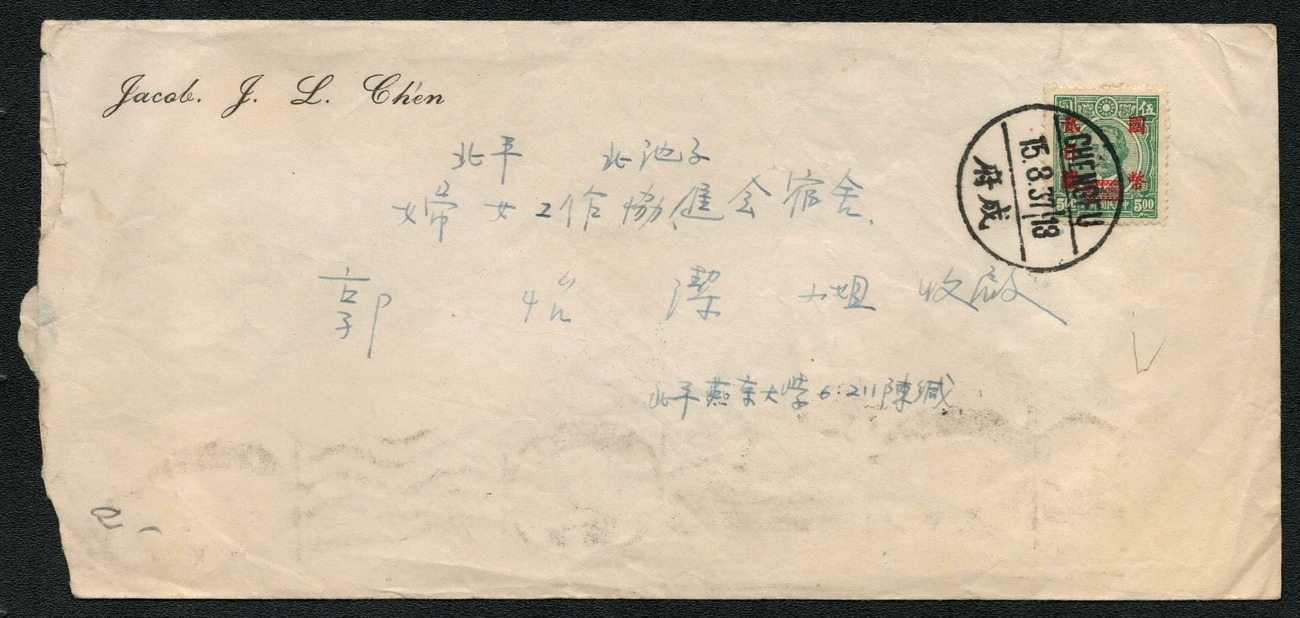 Jacob. J. L. Chén
北平 北池子
婦女工作協健会宿舍.
郭 怡 潔 小姐 收啟
北平燕京大學6:211陳緘
國幣
伍
5 00
CHENGFU
15.8.37.18
府成